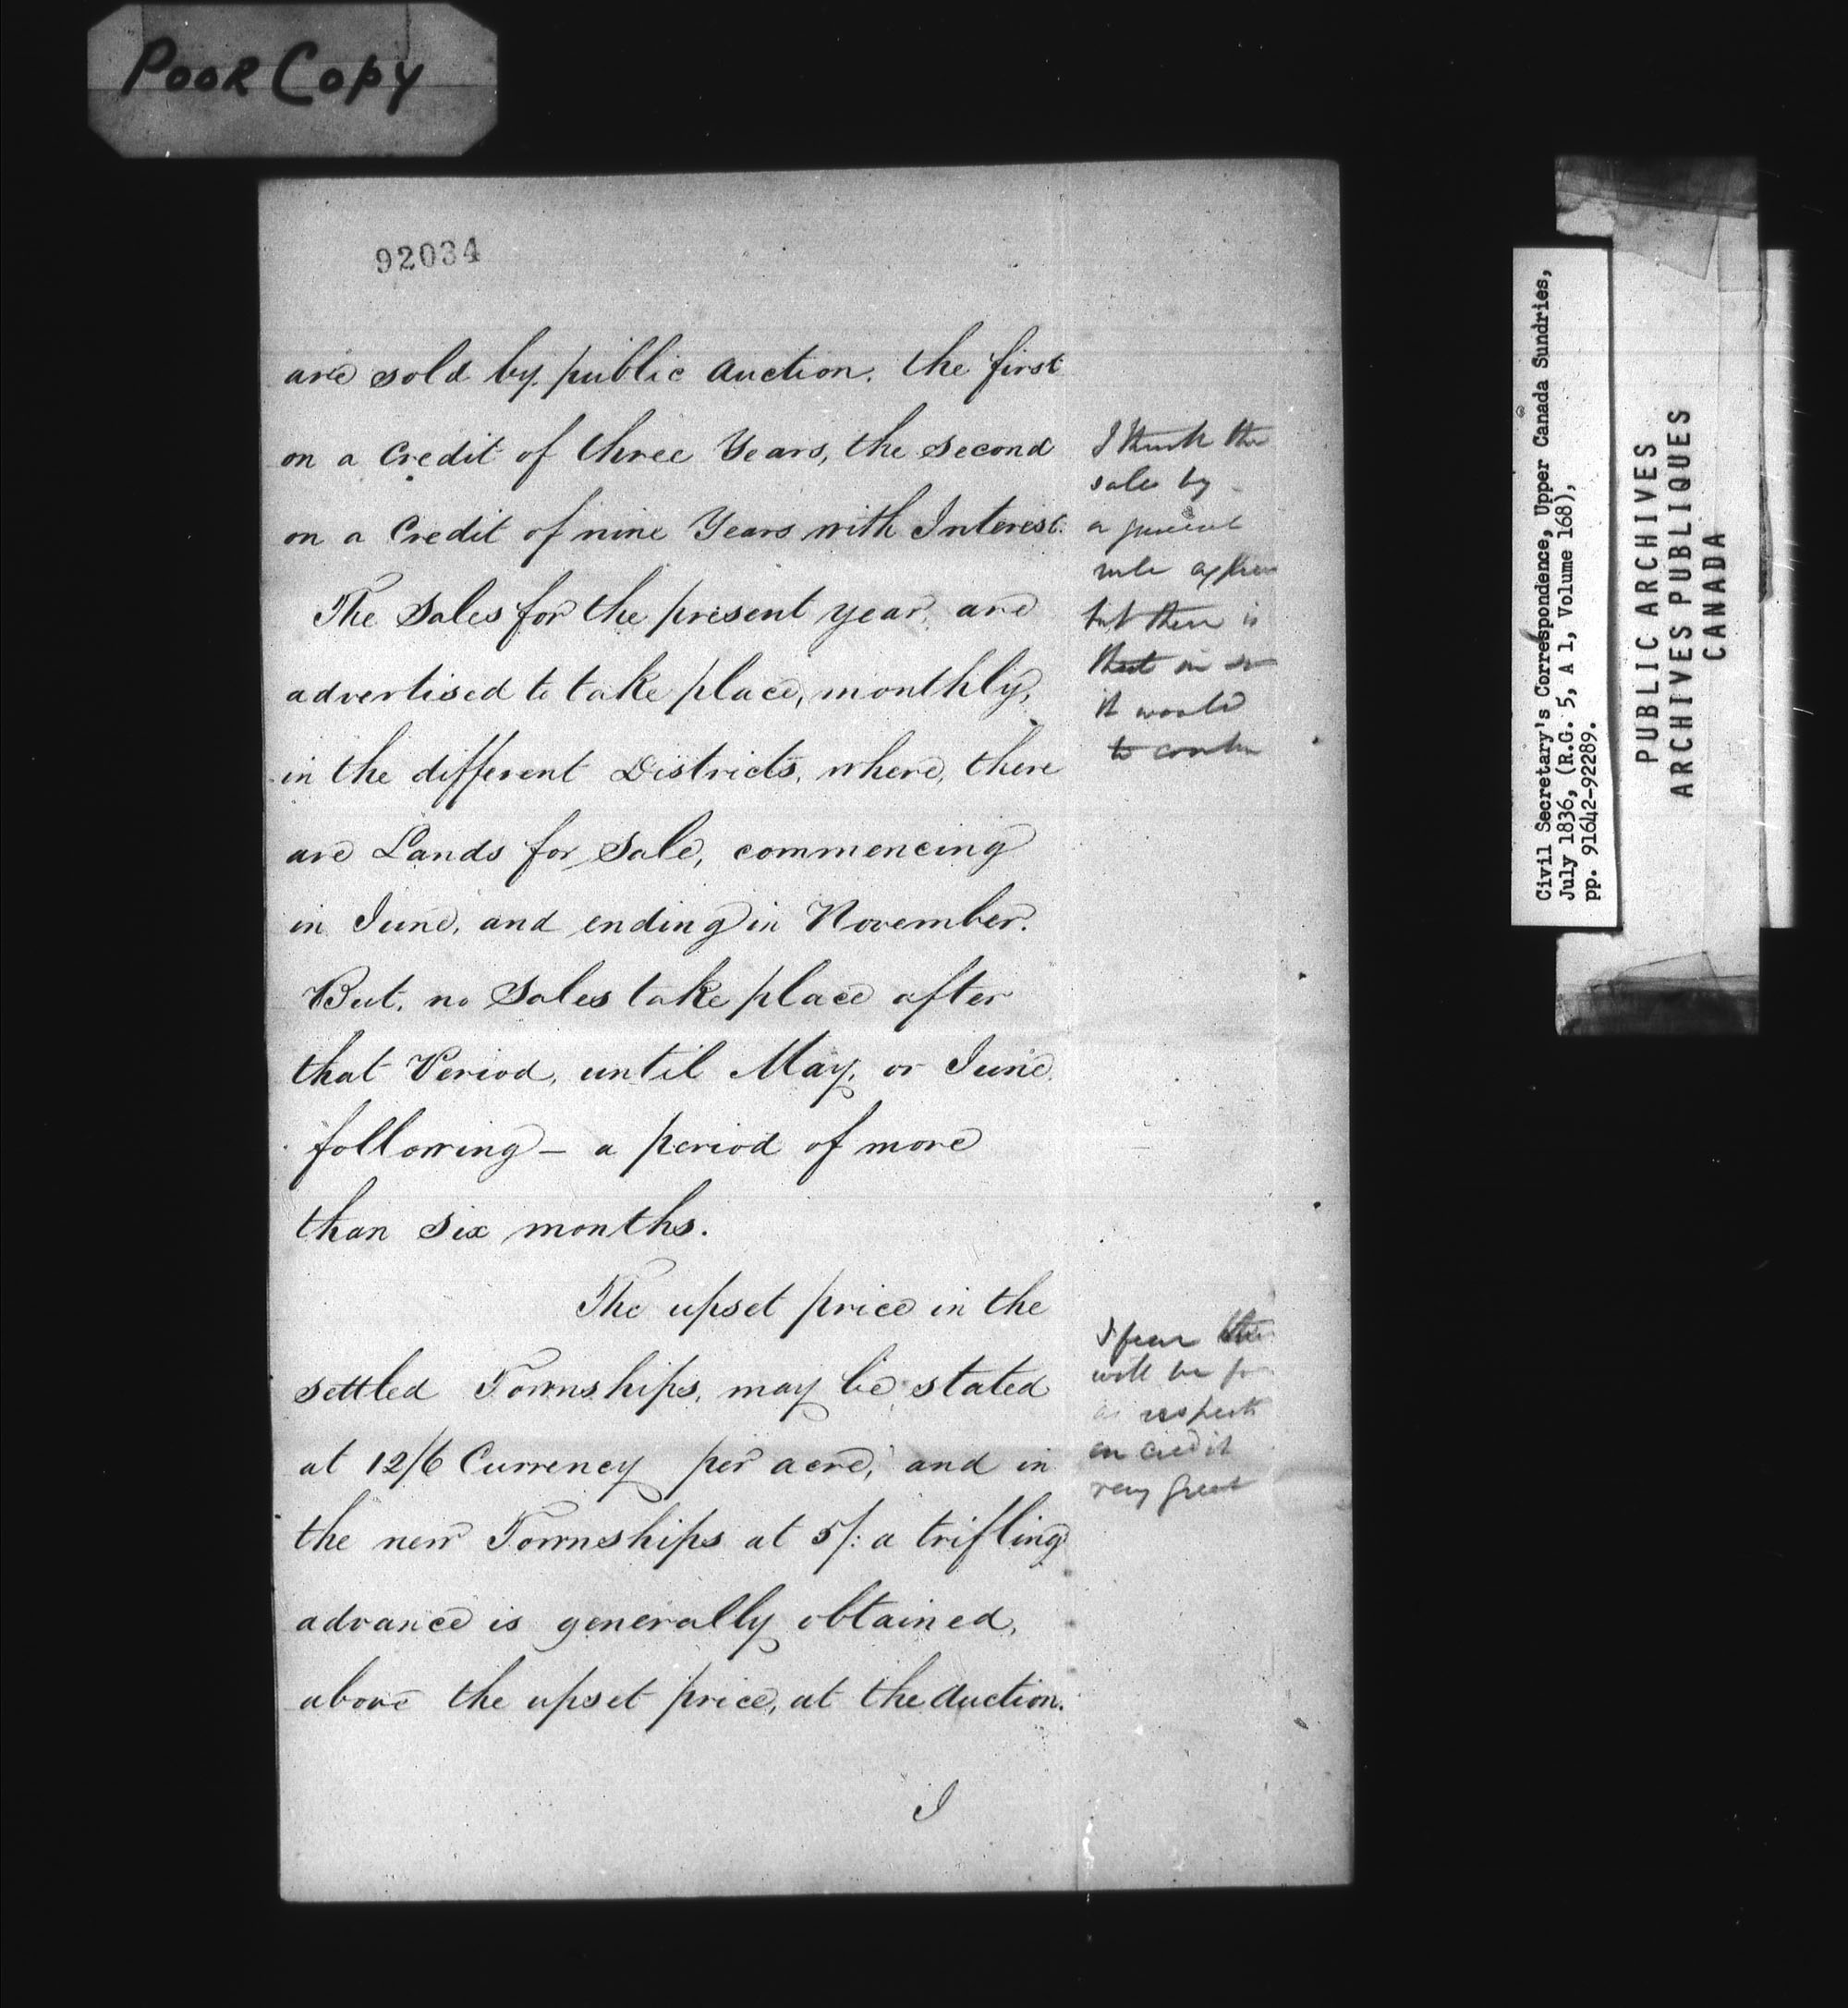 Poor Copy
92034
are sold by public Auction. the first
on a Credit of three Years, the Second
on a Credit of nine Years with Interest.
The Sales for the present year, are
advertised to take place, monthly,
in the different Districts, where, there
are Lands for Sale, commencing
in June, and ending in November.
But, no Sales take place after
that Period, until May, or June
following – a period of more
than Six months.
The upset price in the
settled Townships, may be stated
at 12/6 Currency per acre, and in
the new Townships at 5/: a trifling
advance is generally obtained,
above the upset price, at the Auction.
I
I think the
sale by
a general
rule
but there is
that in
it would
to
I fear the
will be
as respects
on credit
very great
Civil Secretary's Correspondence, Upper Canada Sundries,
July 1836, (R.G. 5, A 1, Volume 168),
pp. 91642-92289.
PUBLIC ARCHIVES
ARCHIVES PUBLIQUES
CANADA